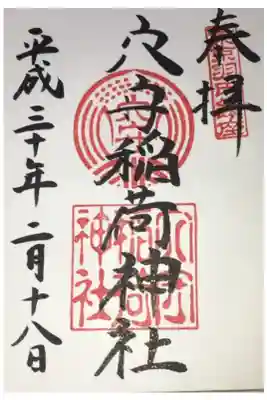 奉拝
穴守稲荷神社
平成三十年二月十八日